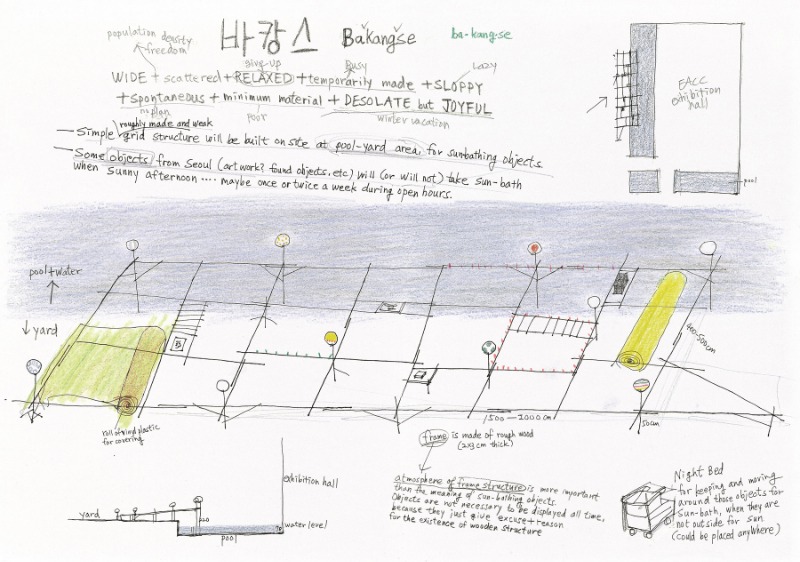 population density
freedom
바캉스 Bakangse ba-kang-se
giving-up Busy Lazy
WIDE + scattered + RELAXED + temporarily made + SLOPPY
+ spontaneous + minimum material + DESOLATE but JOYFUL
no plan poor winter vacation
roughly made and weak
— Simple grid structure will be built on site at pool-yard area, for sunbathing objects.
— Some objects from Seoul (artwork? found objects, etc) will (or will not) take sun-bath
when sunny afternoon .... maybe once or twice a week during open hours.
EACC
exhibition
hall
pool
pool + water
yard
400-500cm
1500-2000cm
50cm
roll of vinyl plastic
for covering
frame is made of rough wood
(2x3cm thick)
atmosphere of frame structure is more important
than the meaning of sun-bathing objects.
Objects are not necessary to be displayed all time,
because they just give excuse + reason
for the existence of wooden structure
Night Bed
for keeping and moving
around those objects for
sun-bath, when they are
not outside for sun
(could be placed anywhere)
exhibition hall
yard
water level
pool